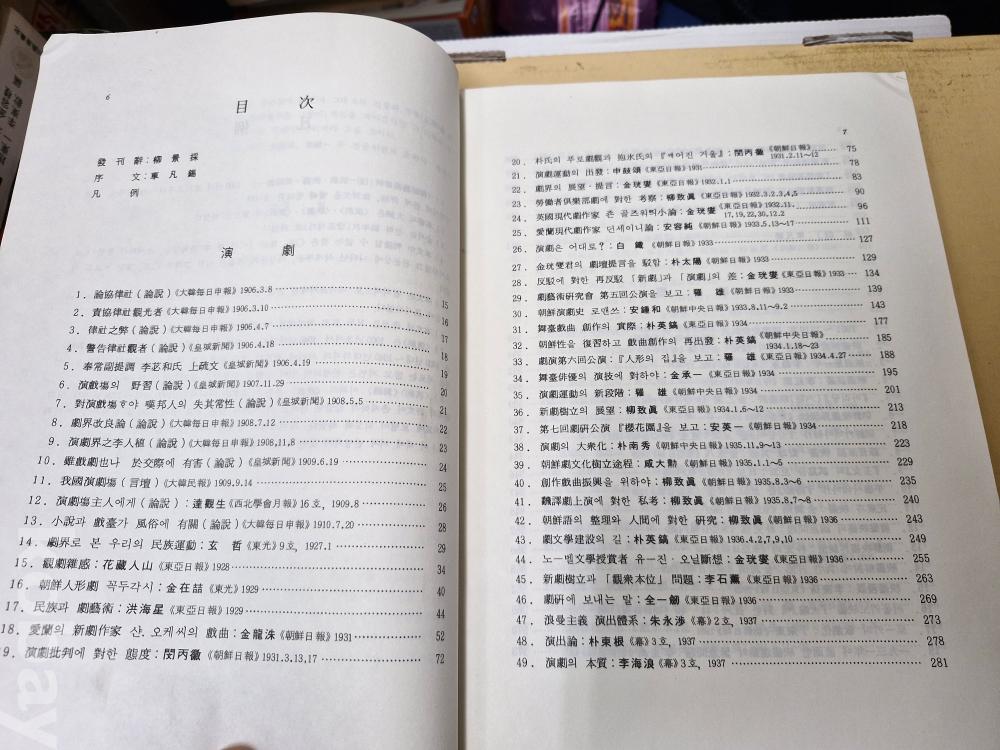 6
目 次
發 刊 辭 : 柳 景 採
序 文 : 車 凡 錫
凡 例
演 劇
1. 論協律社(論說)《大韓每日申報》1906.3.8 15
2. 責協律社觀光者《大韓每日申報》1906.3.10 16
3. 律社之弊(論說)《大韓每日申報》1906.4.7 17
4. 警告律社觀者(論說)《皇城新聞》1906.4.18 18
5. 奉常副提調 李苾和氏 上疏文《皇城新聞》1906.4.19 19
6. 演戲場의 野習(論說)《皇城新聞》1907.11.29 20
7. 對演戲場ᄒᆞ야 嘆邦人의 失其常性(論說)《皇城新聞》1908.5.5 21
8. 劇界改良論(論說)《大韓每日申報》1908.7.12 22
9. 演劇界之李人稙(論說)《大韓每日申報》1908,11,8 23
10. 雖戲劇也나 於交際에 有害(論說)《皇城新聞》1909.6.19 24
11. 我國演劇場(言壇)《大韓民報》1909.9.14 25
12. 演劇場主人에게(論說) : 達觀生《西北學會月報》16호, 1909.8 26
13. 小說과 戲臺가 風俗에 有關(論說)《大韓每日申報》1910.7.20 28
14. 劇界로 본 우리의 民族運動 : 玄 哲《東光》9호, 1927.1 29
15. 觀劇雜感 : 花藏人山《東亞日報》1928 34
16. 朝鮮人形劇 꼭두각시 : 金在喆《東光》1929 40
17. 民族과 劇藝術 : 洪海星《東亞日報》1929 44
18. 愛蘭의 新劇作家 샨, 오케씨의 戲曲 : 金龍洙《朝鮮日報》1931 52
19. 演劇批判에 對한 態度 : 閔丙徽《朝鮮日報》1931.3.13,17 72
7
20. 朴氏의 푸로劇觀과 抱氷氏의 『깨어진 거울』 : 閔丙徽《朝鮮日報》1931.2.11~12 75
21. 演劇運動의 出發 : 申鼓頌《朝鮮日報》1931 78
22. 劇界의 展望·提言 : 金珖燮《東亞日報》1932.1.1 83
23. 勞働者俱樂部劇에 對한 考察 : 柳致眞《東亞日報》1932.3.2,3,4,5 90
24. 英國現代劇作家 죤 골즈워씌小論 : 金珖燮《東亞日報》1932.11.17,19,22,30,12.2 96
25. 愛蘭現代劇作家 던세이니論 : 安容純《朝鮮日報》1933.5.13~17 111
26. 演劇은 어대로? : 白 鐵《朝鮮日報》1933 127
27. 金珖燮君의 劇壇提言을 駁함 : 朴太陽《朝鮮日報》1933 129
28. 反駁에 對한 再反駁 「新劇」과 「演劇」의 差 : 金珖燮《東亞日報》1933 134
29. 劇藝術硏究會 第五回公演을 보고 : 羅 雄《朝鮮日報》1933 139
30. 朝鮮演劇史 로맨쓰 : 安鍾和《朝鮮中央日報》1933.8.11~9.2 143
31. 舞臺戲曲 創作의 實際 : 朴英鎬《東亞日報》1934 177
32. 朝鮮性을 復習하고 戲曲創作의 再出發 : 朴英鎬《朝鮮中央日報》1934.1.18~23 185
33. 劇演第六回公演 : 『人形의 집』을 보고 : 羅 雄《東亞日報》1934.4.27 188
34. 舞臺俳優의 演技에 對하야 : 金承一《東亞日報》1934 195
35. 演劇運動의 新段階 : 羅 雄《朝鮮中央日報》1934 201
36. 新劇樹立의 展望 : 柳致眞《東亞日報》1934.1.6~12 213
37. 第七回劇硏公演 『櫻花園』을 보고 : 安英一《朝鮮日報》1934 218
38. 演劇의 大衆化 : 朴南秀《朝鮮中央日報》1935.11.9~13 223
39. 朝鮮劇文化樹立途程 : 咸大勳《朝鮮日報》1935.1.1~5 229
40. 創作戲曲振興을 위하야 : 柳致眞《朝鮮日報》1935.8.3~6 235
41. 飜譯劇上演에 對한 私考 : 柳致眞《朝鮮日報》1935.8.7~8 240
42. 朝鮮語의 整理와 人間에 對한 硏究 : 柳致眞《朝鮮日報》1936 243
43. 劇文學建設의 길 : 朴英鎬《東亞日報》1936.4.2,7,9,10 249
44. 노-벨文學授賞者 유-진·오닐斷想 : 金珖燮《朝鮮日報》1936 255
45. 新劇樹立과 「觀衆本位」 問題 : 李石薰《東亞日報》1936 263
46. 劇硏에 보내는 말 : 全一劒《朝鮮日報》1936 269
47. 浪曼主義 演出體系 : 朱永涉《幕》2호, 1937 273
48. 演出論 : 朴東根《幕》3호, 1937 278
49. 演劇의 本質 : 李海浪《幕》3호, 1937 281